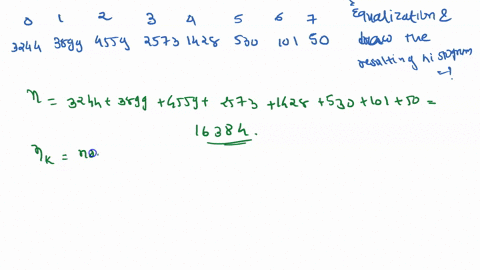 0 1 2 3 4 5 6 7
3244 3899 4559 2573 1428 530 101 50
Equalization &
draw the
resulting histogram
n = 3244 + 3899 + 4559 + 2573 + 1428 + 530 + 101 + 50 =
16384.
n_k = no